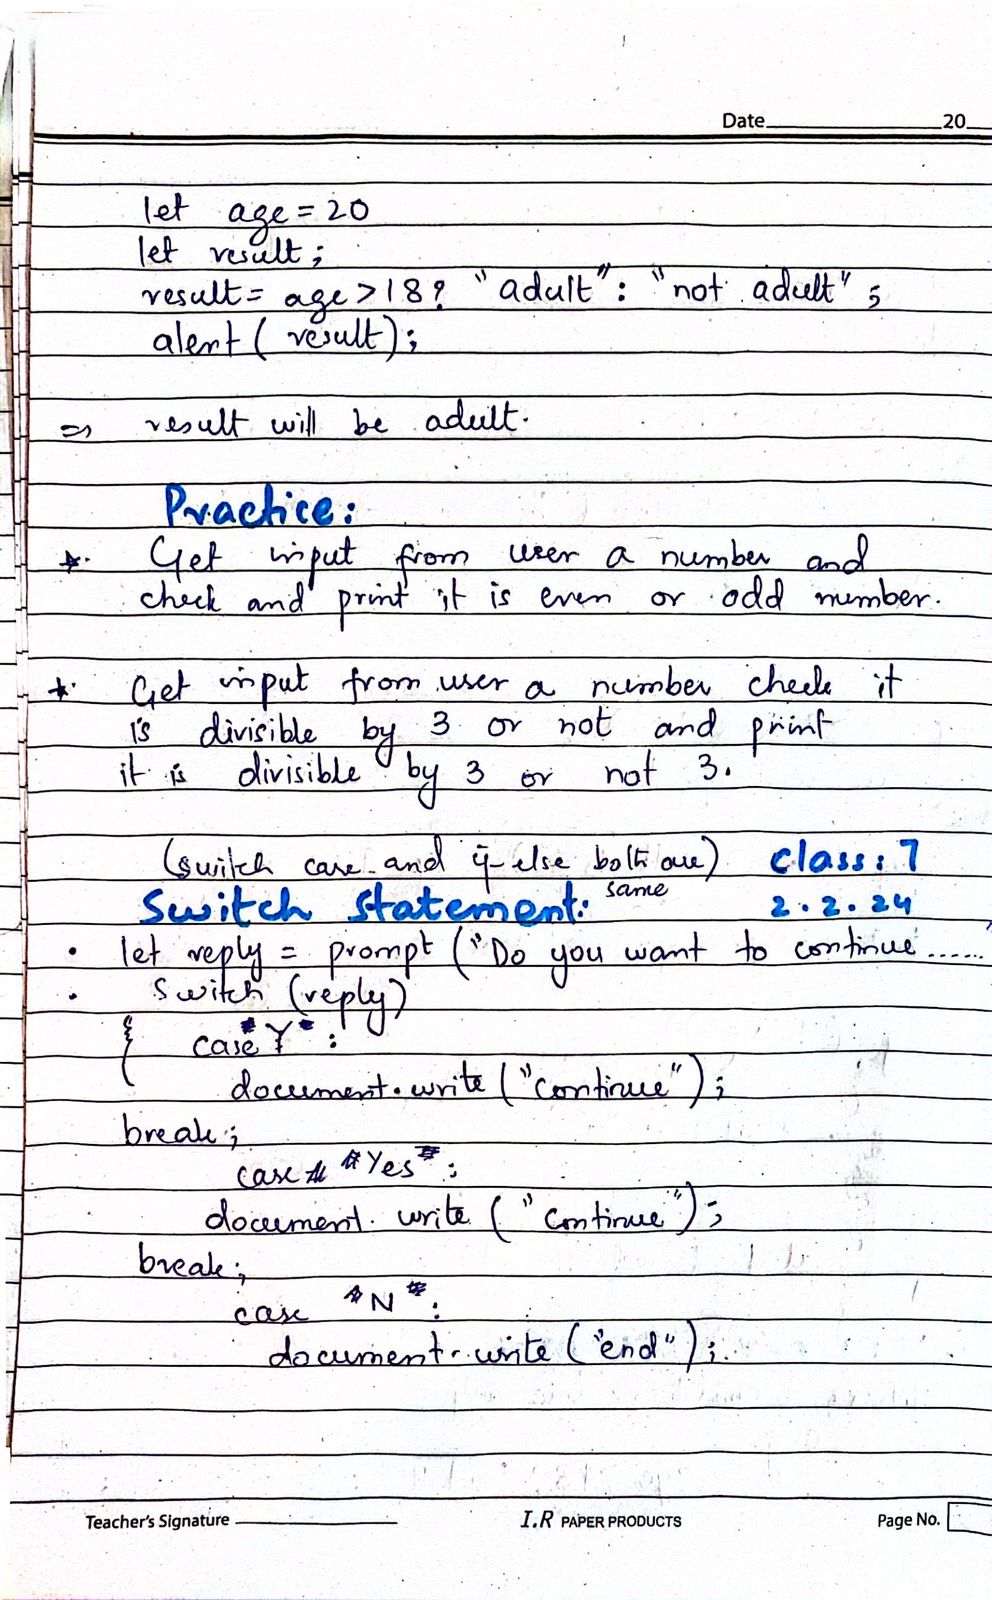 Date 20
let age = 20
let result;
result = age > 18? "adult": "not adult";
alert( result);
=> result will be adult.
Practice:
*. Get input from user a number and
check and print it is even or odd number.
*. Get input from user a number check it
is divisible by 3 or not and print
it is divisible by 3 or not 3.
(switch case and if-else both are) class: 7
same
Switch Statement: 2.2.24
• let reply = prompt ("Do you want to continue ......
• Switch (reply)
{ case "Y" :
document.write ("Continue");
break;
case "Yes" :
document.write ("Continue");
break;
case "N" :
document.write ("end");
Teacher's Signature I.R PAPER PRODUCTS Page No.